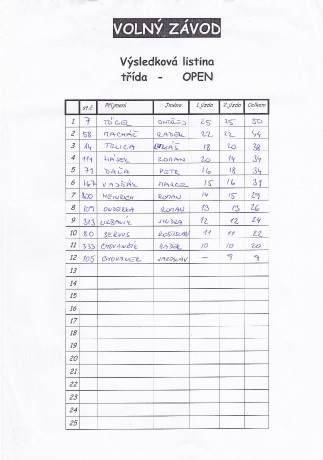 VOLNÝ ZÁVOD
Výsledková listina
třída - OPEN
st.č Příjmení Jméno 1.jízda 2.jízda Celkem
1 7 ONDŘEJ 25 25 50
2 58 MACHÁČ RADEK 22 22 44
3 14 TRLICA LUKÁŠ 18 20 38
4 111 HÁJEK ROMAN 20 14 34
5 71 DAŇA PETR 16 18 34
6 167 MAREK 15 16 31
7 800 HEINRICH ROMAN 14 15 29
8 109 ONDERKA ROMAN 13 13 26
9 313 URBANÍK 12 12 24
10 80 SERVUS ROSTISLAV 11 11 22
11 333 CHOVANČÍK RADEK 10 10 20
12 105 JAROSLAV — 9 9
13
14
15
16
17
18
19
20
21
22
23
24
25